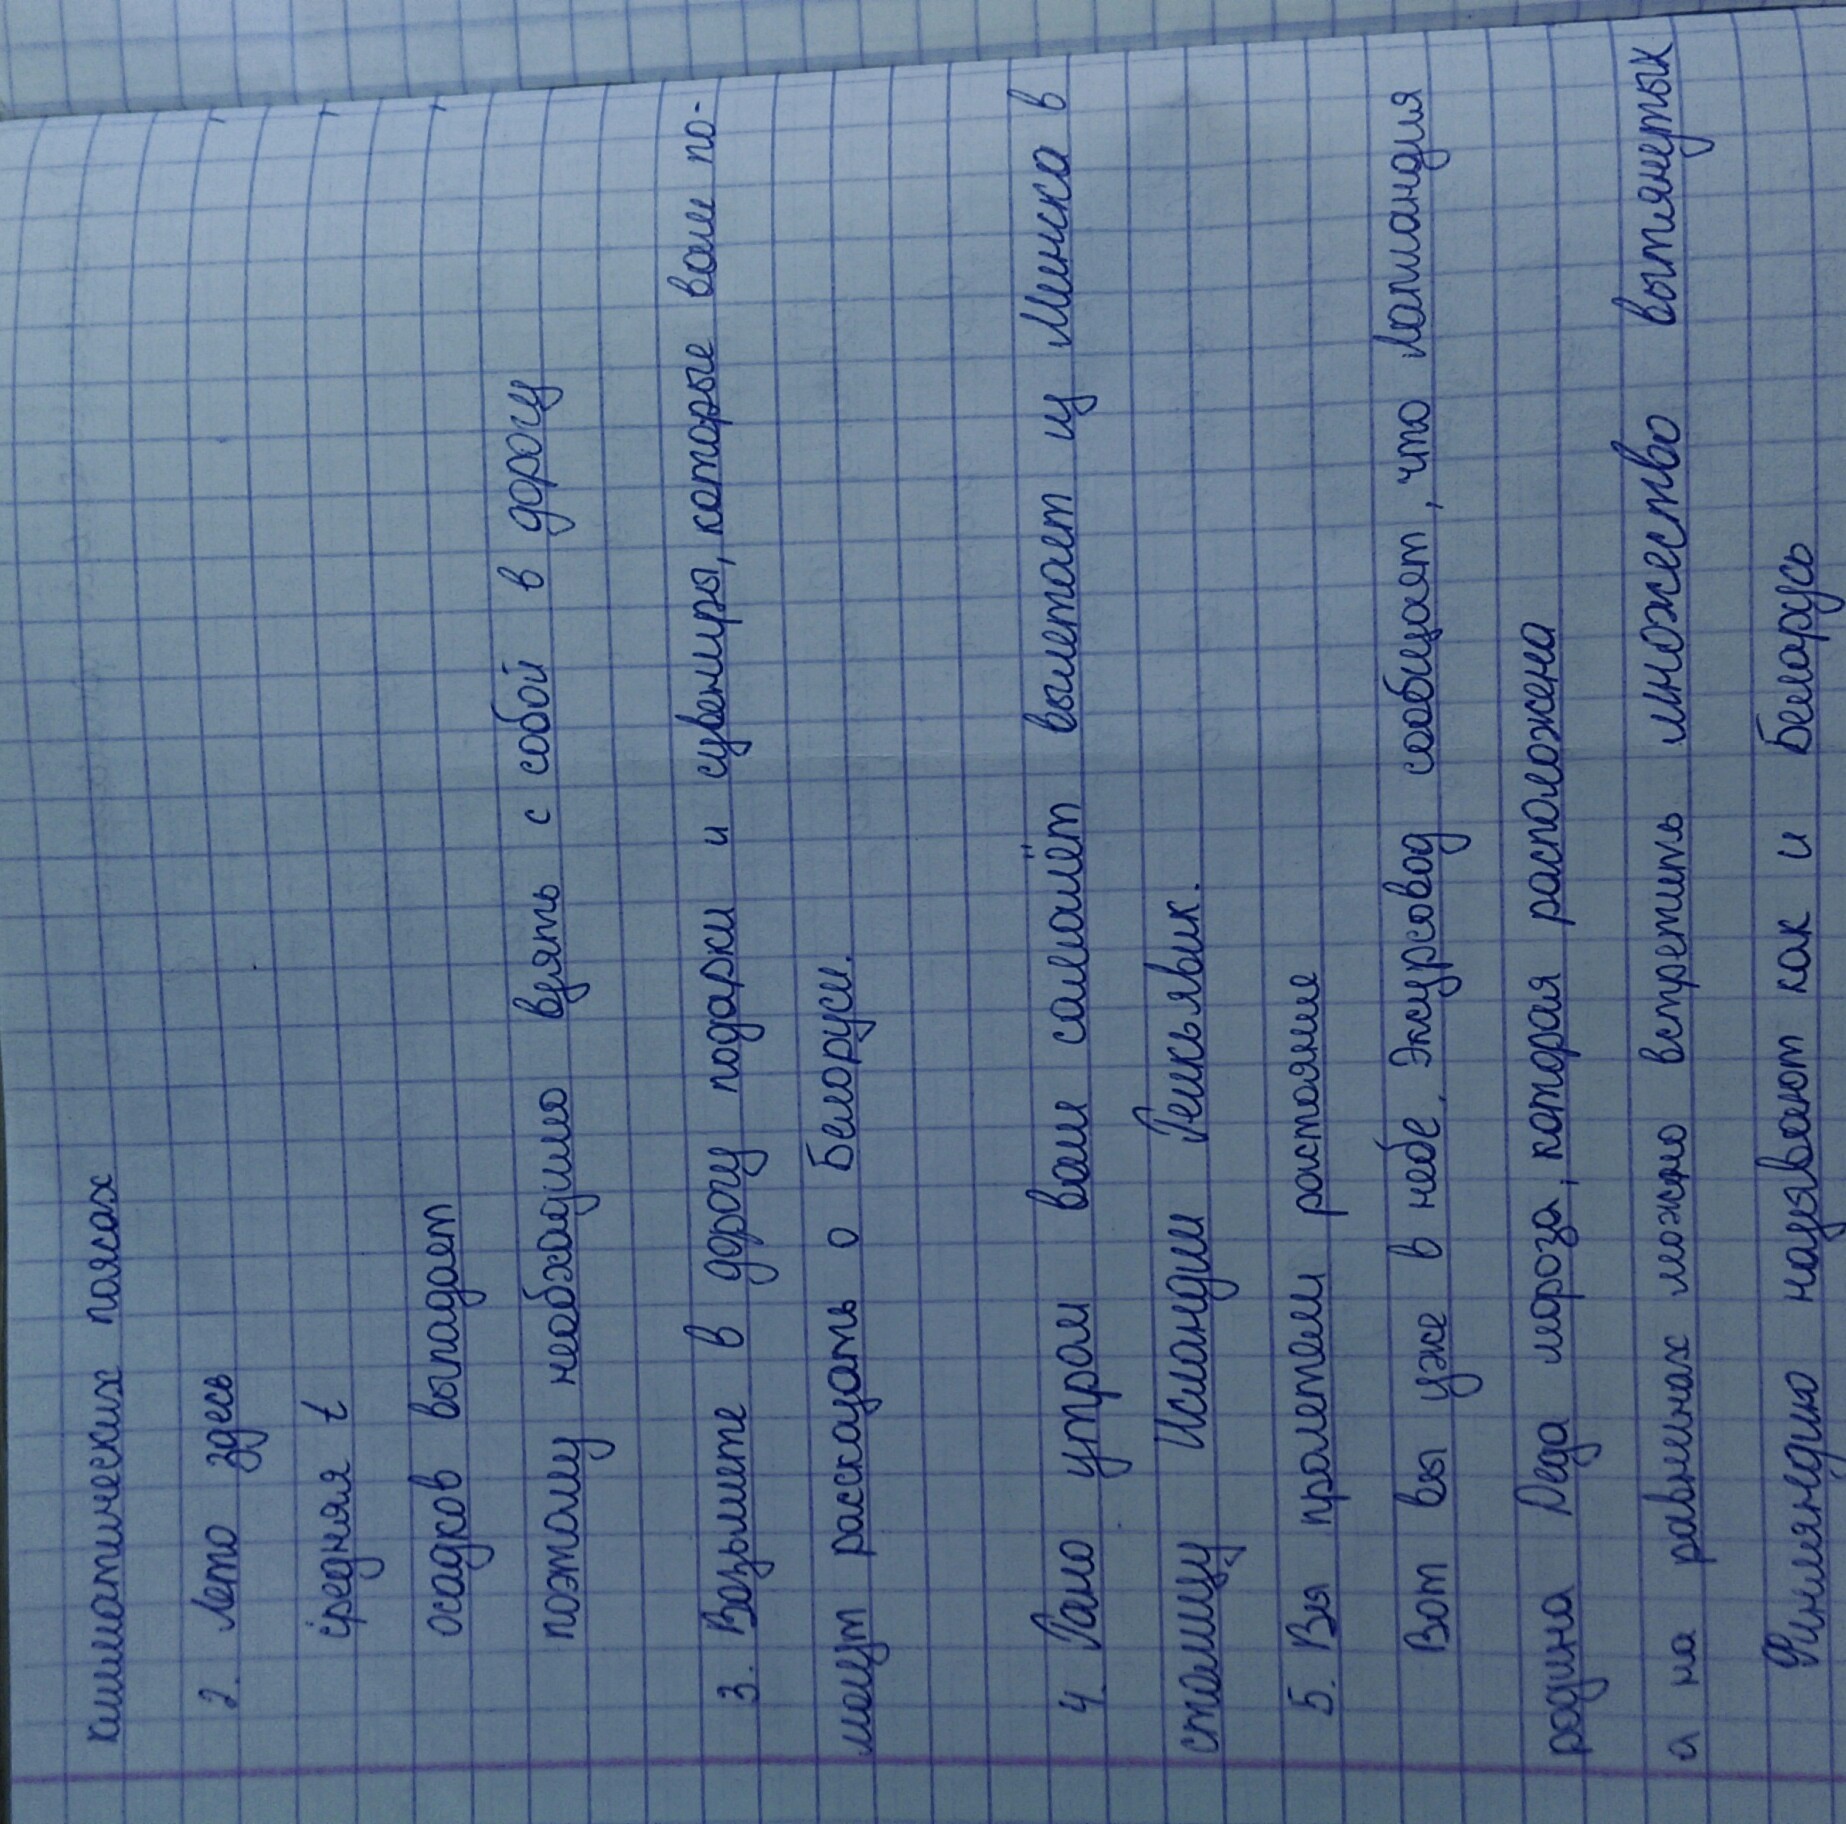 климатических поясах
2. Лето здесь
средняя t
осадков выпадает
поэтому необходимо взять с собой в дорогу
3. Возьмите в дорогу подарки и сувениры, которые вам по-
могут рассказать о Беларуси.
4. Рано утром ваш самолёт вылетает из Минска в
столицу Исландии Рейкьявик.
5. Вы пролетели растояние
Вот вы уже в небе. Экурсовод сообщает, что Лапландия
родина Деда мороза, которая расположена
а на равнинах можно встретить множество вытянутых
Финляндию называют как и Беларусь